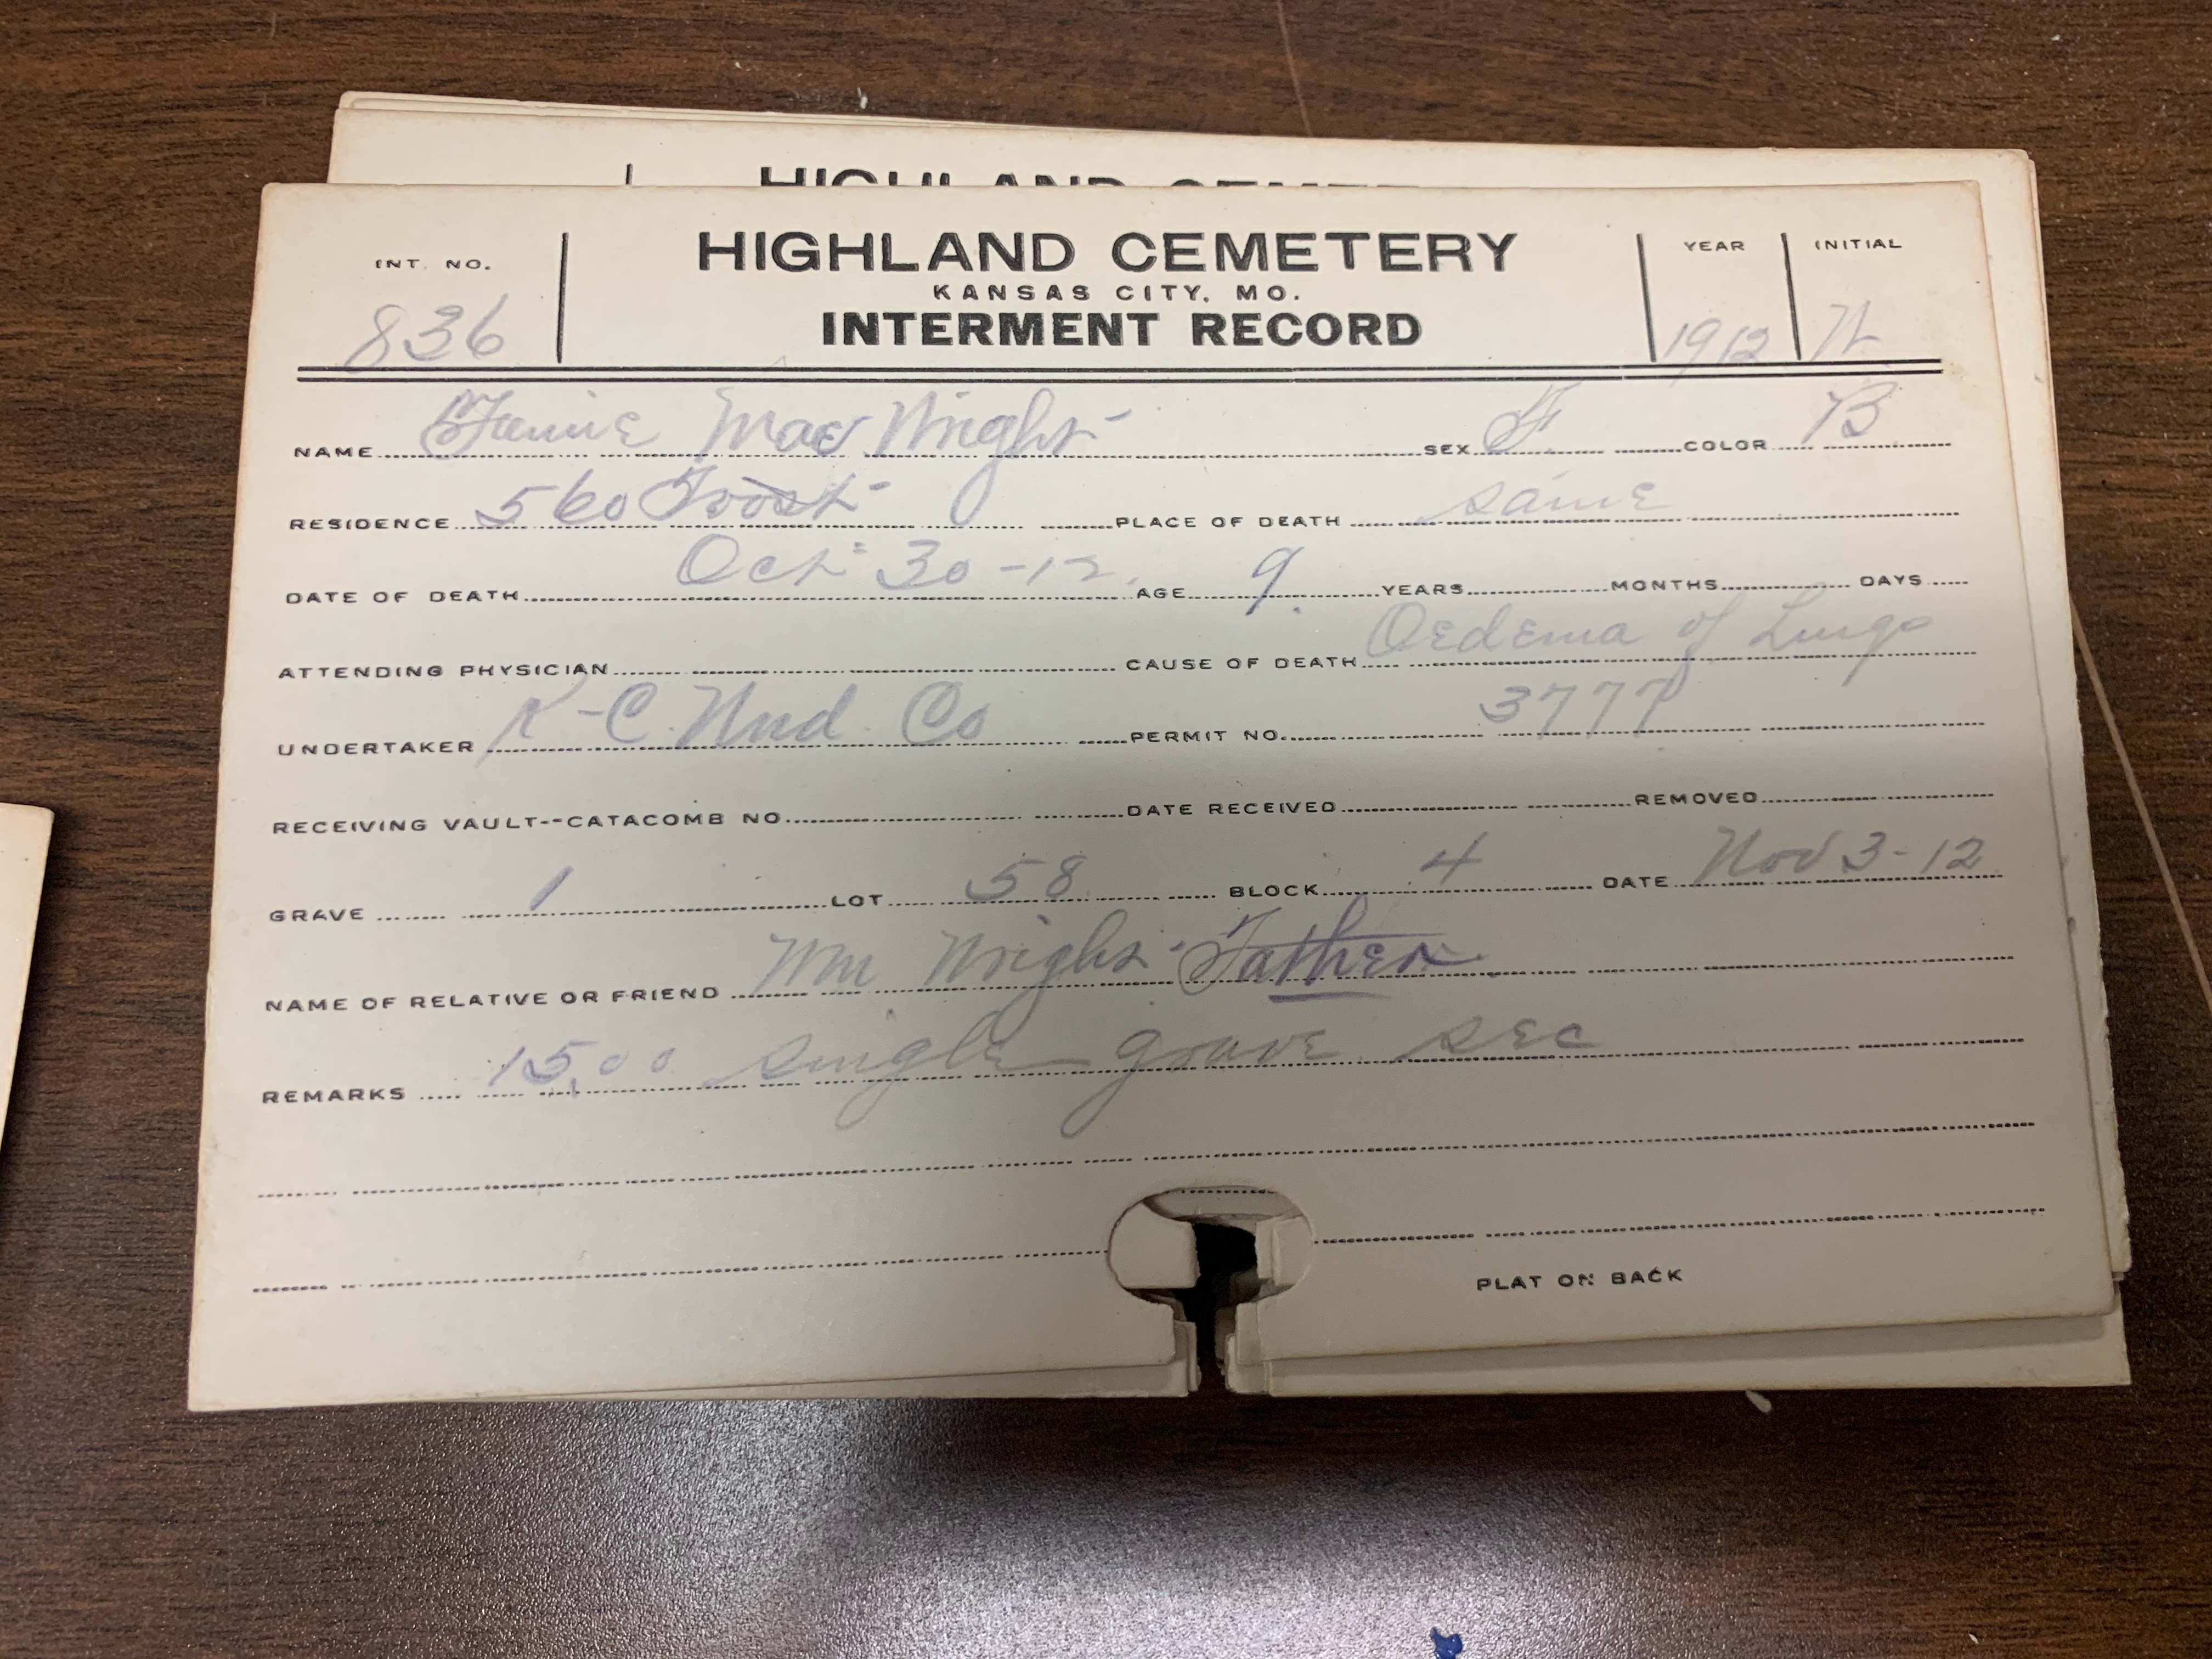 HIGHLAND CEMETE
INT. NO. HIGHLAND CEMETERY YEAR INITIAL
KANSAS CITY, MO.
836 INTERMENT RECORD 1912 W
NAME Fannie Mae Wright SEX F COLOR B
RESIDENCE 560 Troost PLACE OF DEATH same
DATE OF DEATH Oct 30-12. AGE 9 YEARS MONTHS DAYS
ATTENDING PHYSICIAN CAUSE OF DEATH Oedema of Lungs
UNDERTAKER K-C. Und. Co PERMIT NO. 3777
RECEIVING VAULT--CATACOMB NO. DATE RECEIVED REMOVED
GRAVE 1 LOT 58 BLOCK 4 DATE Nov 3-12
NAME OF RELATIVE OR FRIEND Wm Wright Father
REMARKS 15.00 single grave sec
PLAT ON BACK